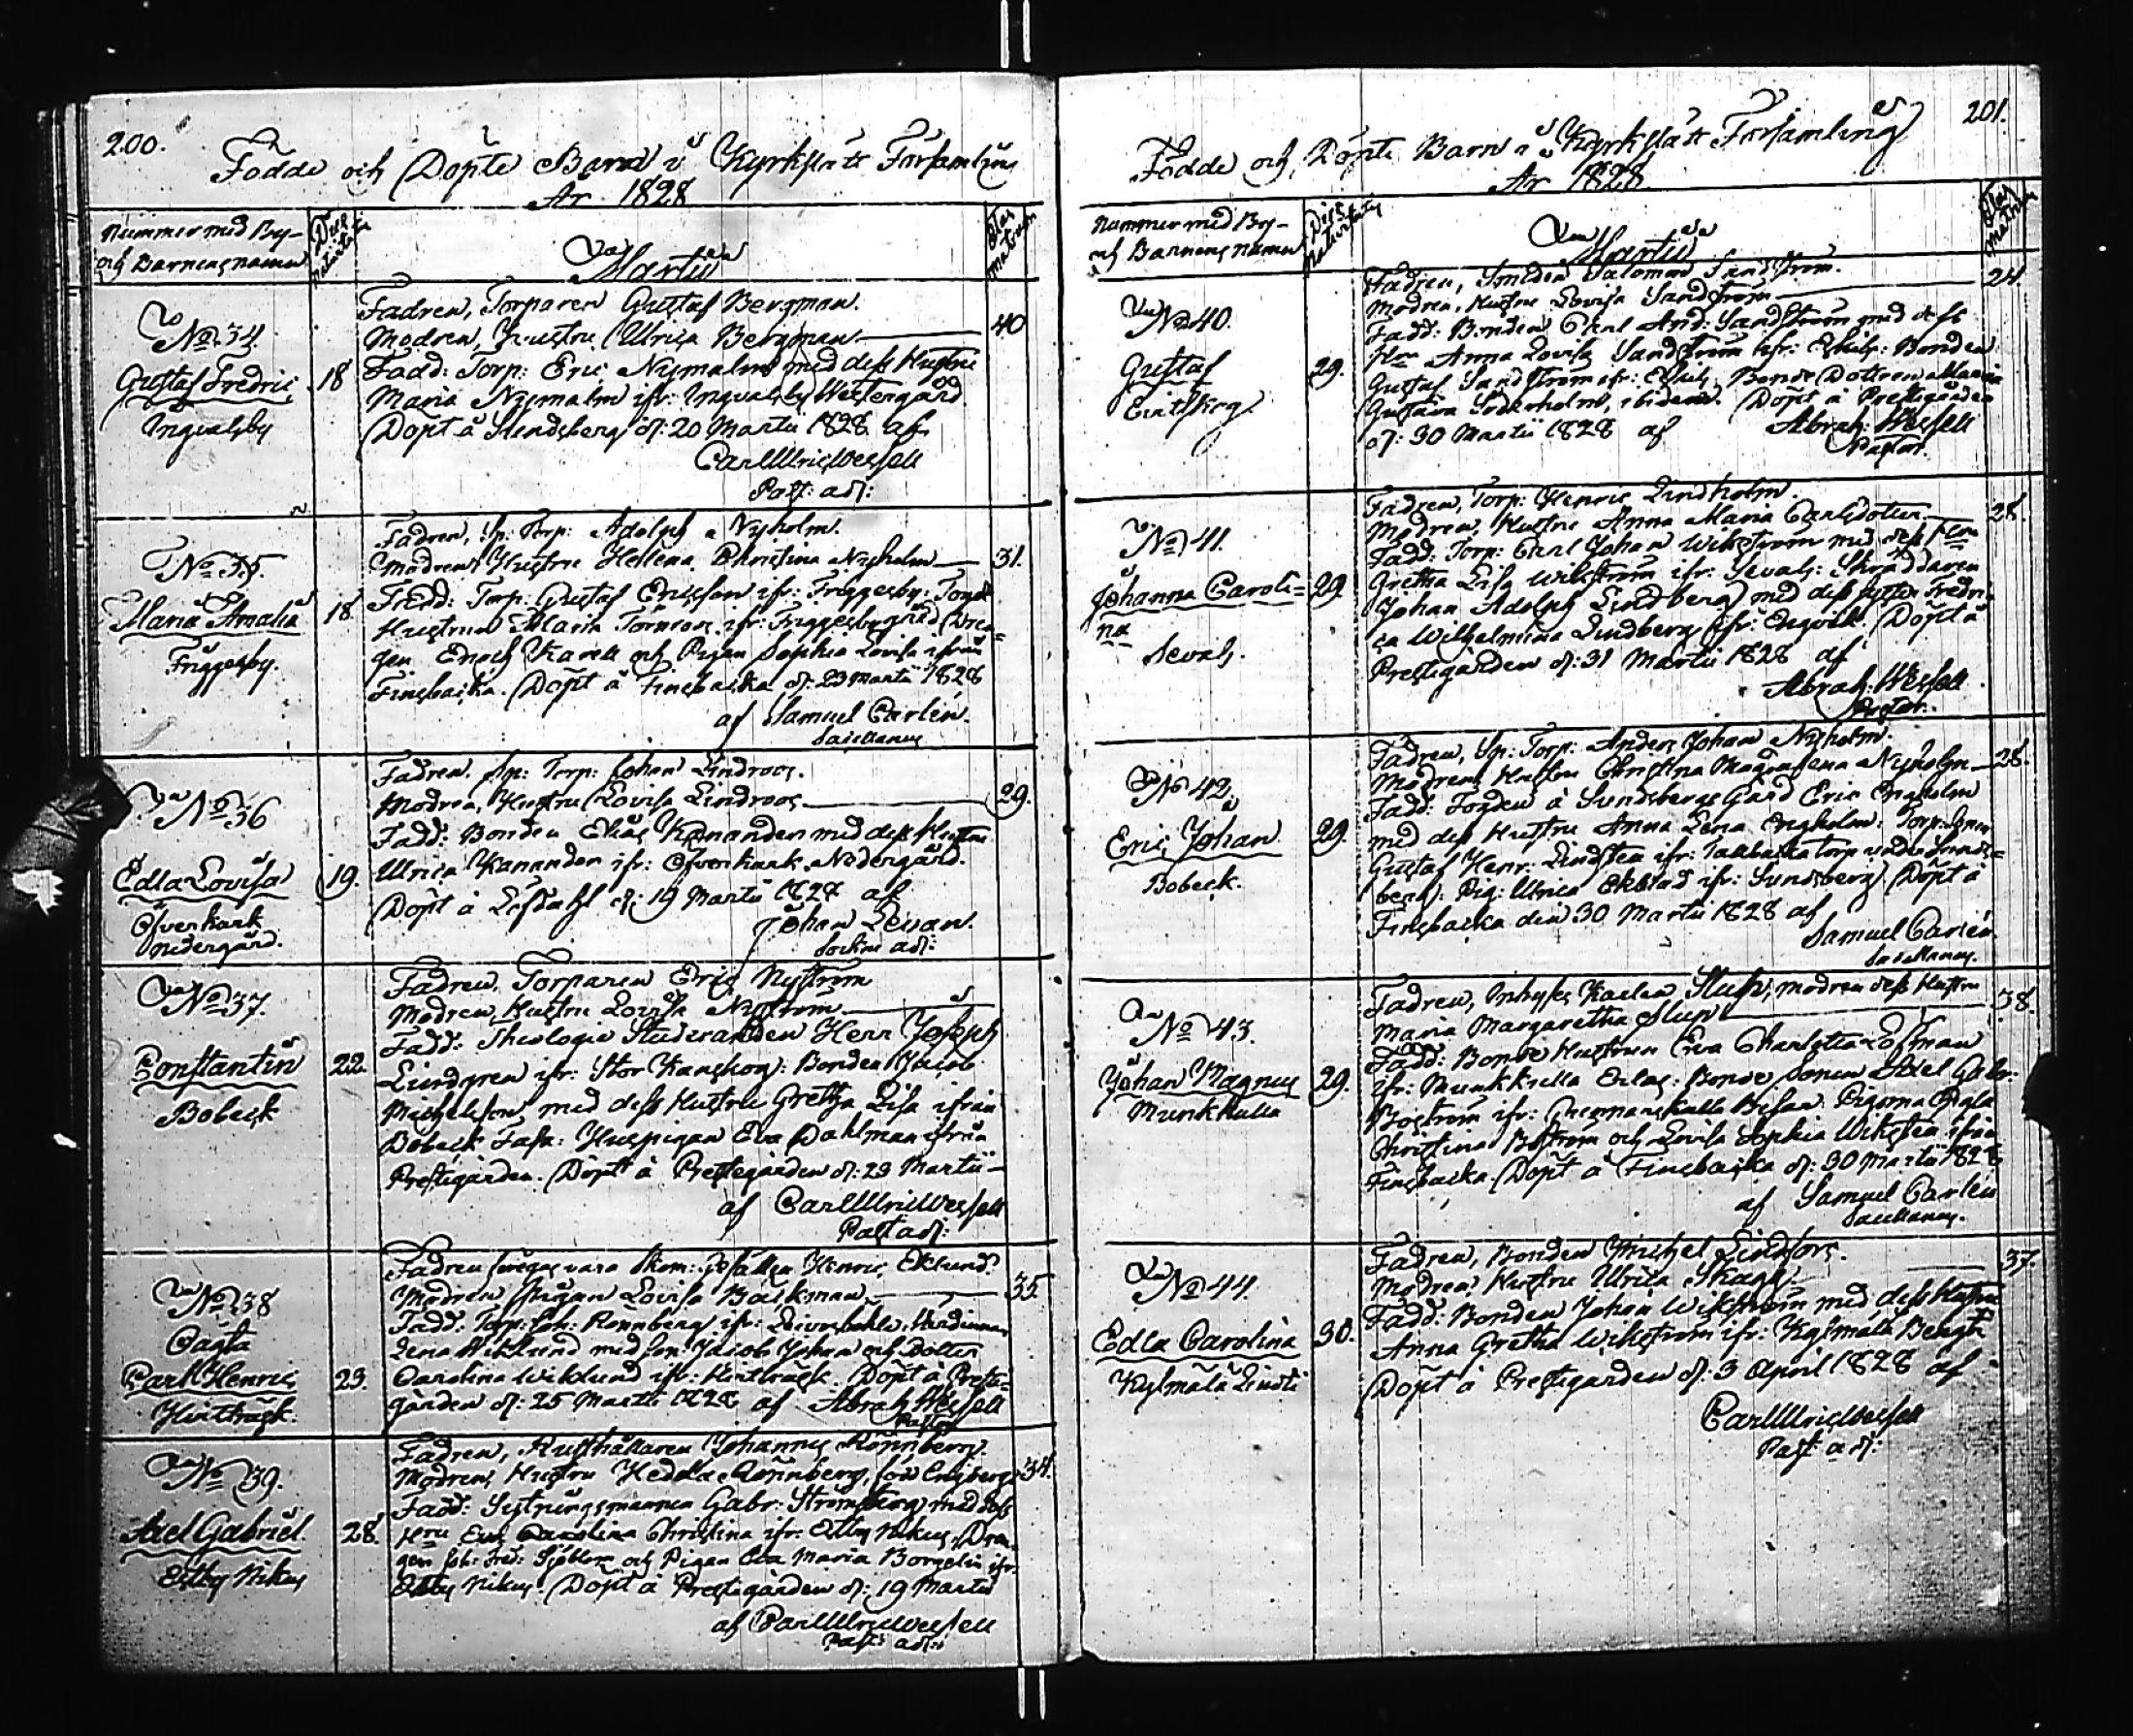 200.
Födde och Döpte Barn i Kyrkslätt Församling
År 1828
Nummer med By-
och Barnens namn
Dies nativitatis
Martii
No 34.
Gustaf Fredric
Ingvalsby
18
Fadren, Torparen Gustaf Bergman.
Modren, Hustru Ulrica Bergman
40
Fadd: Torp: Eric Nymalm med dess Hustru
Maria Nymalm ifr: Ingvalsby Westergård.
Döpt å Sundsberg d: 20 Martii 1828 af
Carl Ulric Wessell
Past: adj:
No 35.
Maria Amalia
Friggesby.
18
Fadren, Sp: Torp: Adolph Nyholm.
Modren Hustru Hellena Christina Nyholm
31.
Fadd: Torp: Gustaf Ericsson ifr: Friggesby:
Hustrun Maria Törnroos ifr: Friggesby gård Drän-
gen Enoch Karell och Pigan Sophia Lovisa ifrån
Finsbacka. Döpt å Finsbacka d: 23 Martii 1828
af Samuel Carlén.
Sacellanus
No 36
Edla Lovisa
Öfverkurk
Nedergård.
19.
Fadren. Sp: Torp: Johan Lindroos.
Modren, Hustru Lovisa Lindroos.
29.
Fadd: Bonden Elias Kananden med dess Hustru
Ulrica Kananden ifr: Öfverkurk Nedergård.
Döpt å Lisdahl d: 19 Martii 1828 af
Johan Levan.
Sockne adj:
No 37.
Constantin
Bobeck
22
Fadren, Torparen Eric Nyström
Modren, Hustru Lovisa Nyström
Fadd: Theologie Studeranden Herr Joseph
Lindgren ifr: Stor Kanskog: Bonden Jacob
Michelsson med dess Hustru Gretha Lisa ifrån
Bobeck Huspigan Eva Dahlman ifrån
Prestegården. Döpt å Prestegården d: 23 Martii
af Carl Ulric Wessell
Past adj:
No 38
Oägta
Carl Henric
Hirtträsk.
23.
Fadren säges vara Skom: Gesällen Henric Eklund.
Modren Pigan Lovisa Backman.
35
Fadd: Torp: Joh: Rönnberg ifr: Värdinnan
Lena Wiklund med son Jacob Johan och Dotter
Carolina Wiklund ifr: Hirtträsk. Döpt å Preste-
gården d: 25 Martii 1828 af Abrah: Wessell
Pastor
No 39.
Axel Gabriel
Estby Nikus
28.
Fadren, Rusthållaren Johannes Rönnberg.
Modren, Hustru Hedda Rönnberg, född Engberg
34.
Fadd: Gabr: Strömberg med dess
Hru Eva Carolina Christina ifr: Estby Nikus, Drän-
gen Joh: Fred: Sjöblom och Pigan Eva Maria Borgelin ifr:
Estby Nikus. Döpt å Prestegården d: 19 Martii
af Carl Ulric Wessell
Past: adj:
201.
Födde och Döpte Barn i Kyrkslätt Församling
År 1828.
Nummer med By-
och Barnens namn
Dies nativitatis
Martii
No 40.
Gustaf
Evitskog.
29.
Fadren, Smeden Salomon Sandström.
Modren, Hustru Lovisa Sandström
24.
Fadd: Bonden Carl And: Sandström med dess
Hru Anna Lovisa Sandström ifr: Eskils: Bonden
Gustaf Sandström ifr: Eskils, Bonde Dottren Maria
Gustava Söderholm, ibidem. Döpt å Prestegården
d: 30 Martii 1828 af Abrah: Wessell
Pastor.
No 41.
Johanna Caroli-
na
Sevals.
29.
Fadren, Torp: Henric Lindholm.
Modren, Hustru Anna Maria Carlsdotter
28.
Fadd: Torp: Carl Johan Wikström med dess Hru
Gretha Lisa Wikström ifr: Sevals: Skräddaren
Johan Adolph Lindberg med dess syster Fredri-
ca Wilhelmina Lindberg ifr: Engvik. Döpt å
Prestegården d: 31 Martii 1828 af
Abrah: Wessell
Pastor.
No 42.
Eric Johan
Bobeck.
29.
Fadren, Sp: Torp: Anders Johan Nyholm.
Modren, Hustru Christina Magdalena Nyholm
28.
Fadd: Fogden å Sundsbergs Gård Eric Engholm
med dess Hustru Anna Lena Engholm:
Gustaf Henr: Lindsten ifr: Tallbacka torp under Sunds-
berg: Pig: Ulrica Ekblad ifr: Sundsberg Döpt å
Finsbacka den 30 Martii 1828 af
Samuel Carlén
Sacellanus.
No 43.
Johan Magnus
Munkkulla
29.
Fadren, Inhyses Karlen Slup, modren dess Hustru
Maria Margaretha Slup
38.
Fadd: Bonde Hustrun Eva Charlotta Löfman
ifr: Munkkulla Erlas: Bonde sonen Axel Gabr:
Boström ifr: Pigorna
Christina Boström och Lovisa Sophia Wiksten ifrån
Finsbacka Döpt å Finsbacka d: 30 Martii 1828
af Samuel Carlén
Sacellanus.
No 44.
Edla Carolina
Kylmälä Lindti
30.
Fadren, Bonden Michel Lindfors.
Modren, Hustru Ulrica Skagg.
37.
Fadd: Bonden Johan Wikström med dess Hustru
Anna Gretha Wikström ifr: Kylmälä Bengts
Döpt å Prestegården d: 3 April 1828 af
Carl Ulric Wessell
Past: adj: